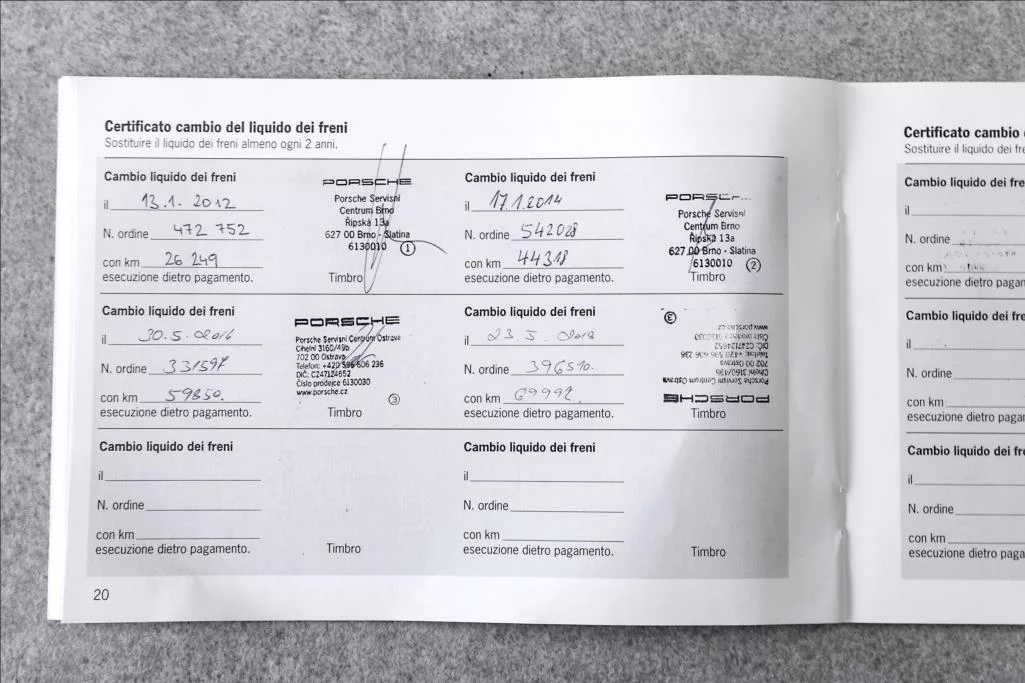 Certificato cambio del liquido dei freni
Sostituire il liquido dei freni almeno ogni 2 anni.
Cambio liquido dei freni
il 13.1. 2012
N. ordine 472 752
con km 26 249
esecuzione dietro pagamento.
PORSCHE
Porsche Servisní
Centrum Brno
Řipská 13a
627 00 Brno - Slatina
6130010 1
Timbro
Cambio liquido dei freni
il 17.1.2014
N. ordine 542028
con km 44318
esecuzione dietro pagamento.
PORSC
Porsche Servisní
Centrum Brno
Řipská 13a
627 00 Brno - Slatina
6130010 2
Timbro
Cambio liquido dei freni
il 30.5. 2016
N. ordine 331597
con km 59850.
esecuzione dietro pagamento.
PORSCHE
Porsche Servisní Centrum Ostrava
Cihelní 3160/49b
702 00 Ostrava
Telefon: +420 596 606 236
DIČ: CZ47124652
Číslo prodejce 6130030
www.porsche.cz
3
Timbro
Cambio liquido dei freni
il 23.5. 2018
N. ordine 396510.
con km
esecuzione dietro pagamento.
PORSCHE
Porsche Servisní Centrum Ostrava
Cihelní 3160/49b
702 00 Ostrava
Telefon: +420 596 606 236
DIČ: CZ47124652
Číslo prodejce 6130030
www.porsche.cz
3
Timbro
Cambio liquido dei freni
il
N. ordine
con km
esecuzione dietro pagamento.
Timbro
Cambio liquido dei freni
il
N. ordine
con km
esecuzione dietro pagamento.
Timbro
20
Certificato cambio
Sostituire il liquido dei fre
Cambio liquido dei fre
il
N. ordine
con km
esecuzione dietro pagam
Cambio liquido dei fre
il
N. ordine
con km
esecuzione dietro pagar
Cambio liquido dei fr
il
N. ordine
con km
esecuzione dietro paga